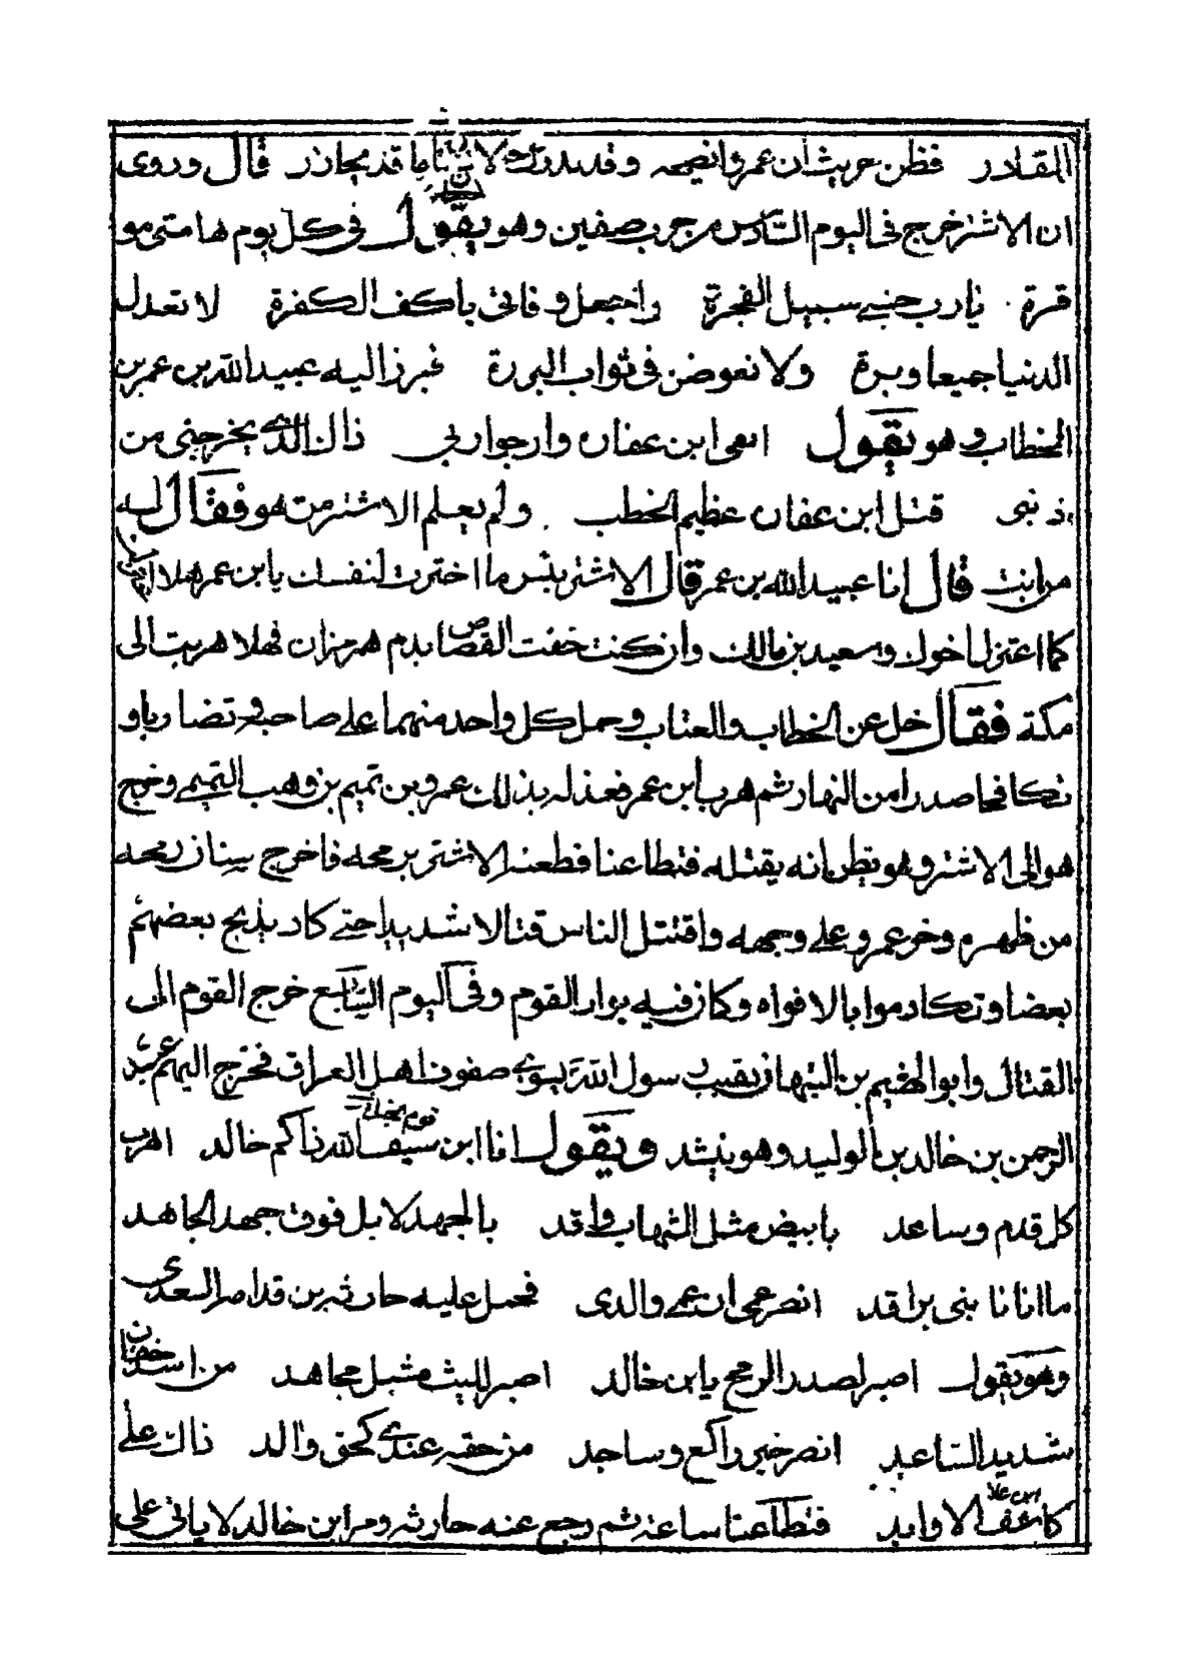 المقادر فظن حريث ان عمرو انصحه وقد قال وروى
ان الاشتر خرج فى اليوم السادس من حرب صفين وهو يقول فى كل يوم هامتى مو
قرة يا رب جنبنى سبيل الفجرة واجعل وفاتى باكف الكفرة لا تعدل
الدنيا جميعا وبرة ولا نعوض فى ثواب البررة فبرز اليه عبيد الله بن عمر بن
الخطاب وهو يقول انعى ابن عفان وارجوا ربى ذاك الذى يخرجنى من
ذنبى قتل ابن عفان عظيم الخطب ولم يعلم الاشتر من هو فقال له
من انت قال انا عبيد الله بن عمر قال الاشتر بئس ما اخترت لنفسك يا بن عمر هلا
كما اعتزل اخوك وسعيد بن مالك وان كنت خفت القصاص بدم هرمزان فهلا هربت الى
مكة فقال خل عن الخطاب والعتاب وحمل كل واحد منهما على صاحبه وتضاربا و
تكافحا صدرا من النهار ثم هرب ابن عمر فعذله بذلك عمرو بن تميم بن وهب التميمى وخرج
هو الى الاشتر وهو يظن انه يقتله فتطاعنا فطعنه الاشتر برمحه فاخرج سنان رمحه
من ظهره وخر عمرو على وجهه واقتتل الناس قتالا شديدا حتى كاد يذبح بعضهم
بعضا وتكادموا بالافواه وكان فيه بوار القوم وفى اليوم السابع خرج القوم الى
القتال وابو الهيثم بن التيهان نقيب رسول الله يسوى صفوف اهل العراق فخرج اليهم عبد
الرحمن بن خالد بن الوليد وهو ينشد ويقول انا ابن سيف الله ذاكم خالد اضرب
كل قدم وساعد بابيض مثل الشهاب واقد بالجهد لا بل فوق جهد الجاهد
ما انا نا بنى براقد انصر عمى ان عمى والدى فحمل عليه حارثة بن قدامة السعدى
وهو يقول اصبر لصدر الرمح يا بن خالد اصبر لليث مشبل مجاهد من اسد خفان
شديد الساعد انصر خير راكع وساجد من حقه عندى كحق والد ذاك على
كاشف الاوابد فتطاعنا ساعة ثم رجع عنه حارثة ومر ابن خالد لا ياتى على